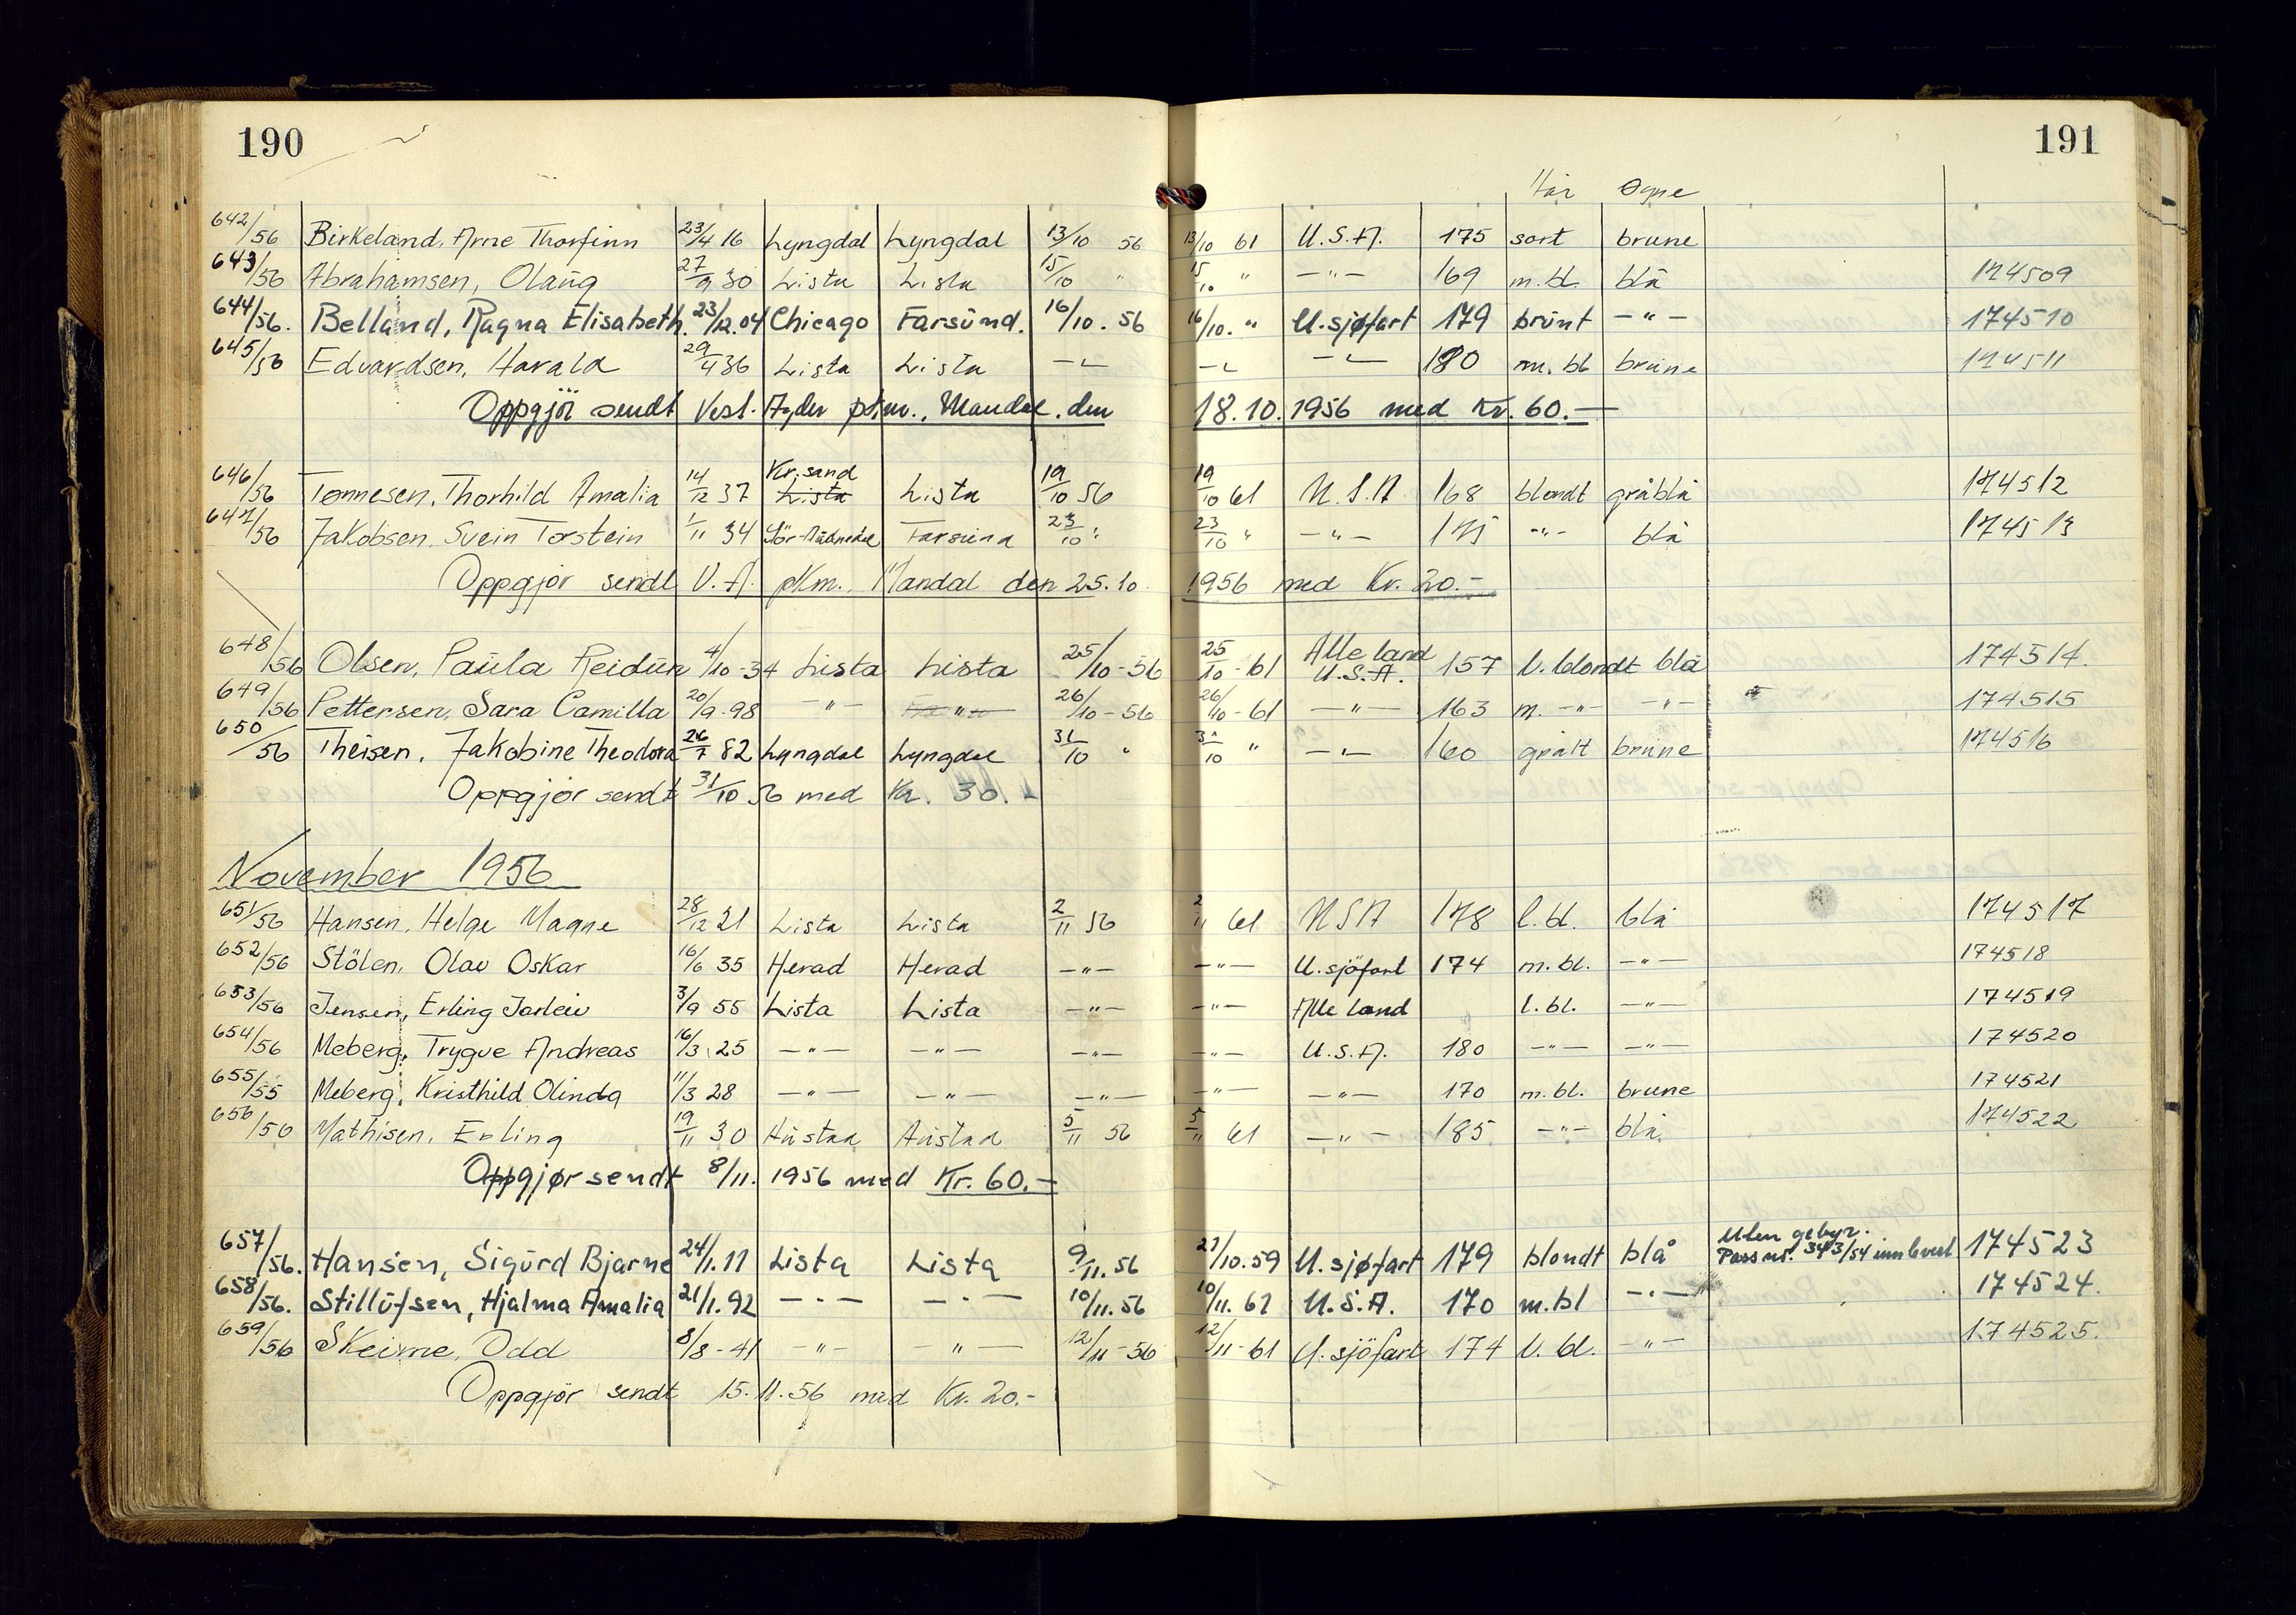 190
191
Hår Øyne
642/56 Birkeland, Arne Thorfinn 23/4 16 Lyngdal Lyngdal 13/10 56 13/10 61 U.S.A. 175 sort brune
643/56 Abrahamsen, Olaug 27/9 30 Lista Lista 15/10 " 15/10 " —"— 169 m.bl. blå 174509
644/56. Belland, Ragna Elisabeth. 23/12.04 Chicago Farsund. 16/10. 56 16/10. " U.sjøfart 179 brunt —"— 174510
645/56 Edvardsen, Harald 29/4 36 Lista Lista —"— —"— —"— 180 m. bl brune 174511
Oppgjör sendt Vest-Agder pkm., Mandal, den 18.10.1956 med Kr. 60.—
646/56 Tønnesen, Thorhild Amalia 14/12 37 Kr.sand Lista Lista 19/10 56 19/10 61 U.S.A 168 blondt gråblå 174512
647/56 Jakobsen, Svein Torstein 1/11 34 Sör-Audnedal Farsund 23/10 " 23/10 " —"— 175 —"— blå 174513
Oppgjör sendt V.A. pkm., Mandal den 25.10. 1956 med Kr. 20.—
648/56 Olsen, Paula Reidun 4/10-34 Lista Lista 25/10-56 25/10-61 Alle land U.S.A. 157 l. blondt blå 174514.
649/56 Pettersen, Sara Camilla 20/9-98 —"— —"— 26/10-56 26/10-61 —"— 163 m. —"— —"— 174515
650/56 Theisen, Jakobine Theodora 26/7 82 Lyngdal Lyngdal 31/10 " 31/10 " —"— 160 grått brune 174516
Oppgjör sendt 31/10 56 med Kr. 30.—
November 1956
651/56 Hansen, Helge Magne 28/12 21 Lista Lista 2/11 56 2/11 61 USA 178 l.bl. blå 174517
652/56 Stölen, Olav Oskar 16/6 35 Herad Herad —"— —"— U.sjöfart 174 m.bl. —"— 174518
653/56 Jensen, Erling Jarleiv 3/9 55 Lista Lista —"— —"— Alle land l.bl. —"— 174519
654/56 Meberg, Trygve Andreas 16/3 25 —"— —"— —"— —"— U.S.A. 180 —"— —"— 174520
655/55 Meberg, Kristhild Olinda 11/3 28 —"— —"— —"— —"— —"— 170 m.bl. brune 174521
656/56 Mathisen, Erling 19/11 30 Austad Austad 5/11 56 5/11 61 —"— 185 —"— blå 174522
Oppgjør sendt 8/11. 1956 med Kr. 60.—
657/56. Hansen, Sigurd Bjarne 24/1.11 Lista Lista 9/11.56 27/10.59 U.sjøfart 179 blondt blå Uten gebyr. Pass nr. 343/54 innlevert 174523
658/56. Stillufsen, Hjalma Amalia 21/1.92 —"— —"— 10/11.56 10/11.61 U.S.A. 170 m.bl —"— 174524.
659/56 Skeime, Odd 8/8-41 —"— —"— 12/11-56 12/11-61 U.sjöfart 174 l. bl. —"— 174525.
Oppgjör sendt 15.11.56 med Kr. 20.-